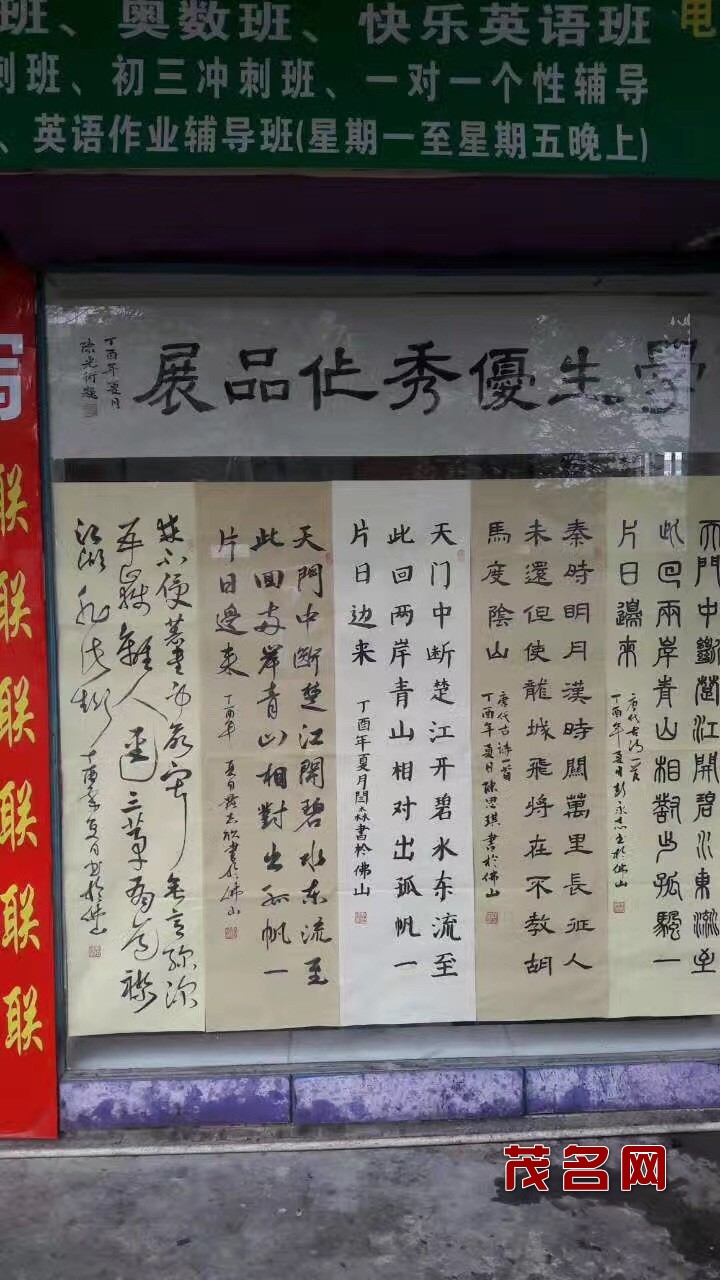 班、奥数班、快乐英语班
电
刺班、初三冲刺班、一对一个性辅导
、英语作业辅导班(星期一至星期五晚上)
學生優秀作品展
丁酉年夏月
陈光衍题
天門中斷楚江開碧水東流至
此回兩岸青山相對出孤帆一
片日邊来
唐代古诗一首
丁酉年夏月彭永志书於佛山
秦時明月漢時關萬里長征人
未還但使龍城飛將在不教胡
馬度陰山
唐代古诗一首
丁酉年夏月陈思琪書於佛山
天门中断楚江开碧水东流至
此回两岸青山相对出孤帆一
片日边来
丁酉年夏月闫森書於佛山
天門中断楚江開碧水东流至
此回两岸青山相對出孤帆一
片日邊来
丁酉年夏月
書於佛山
丁酉年夏月书於佛山
联
联
联
联
联
联
茂名网